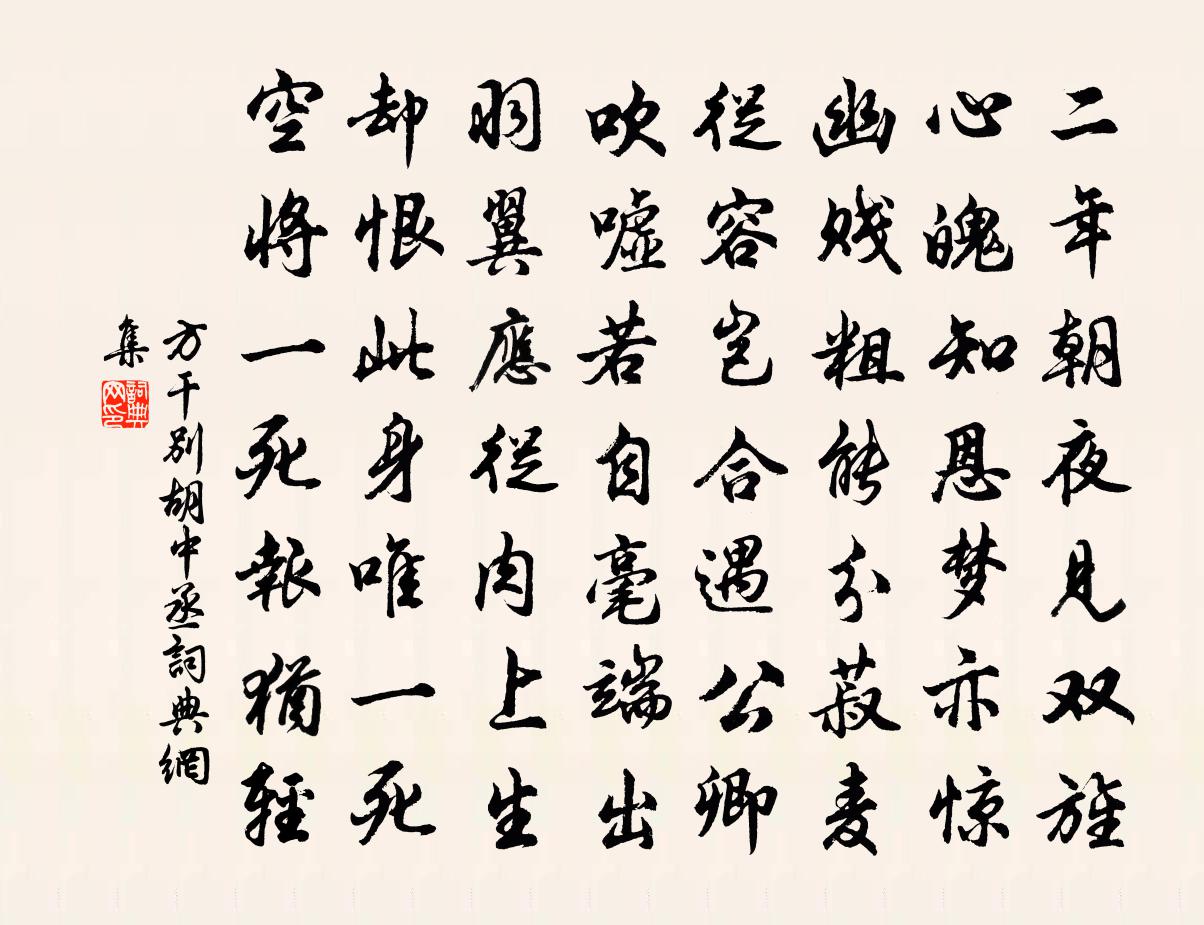 二年朝夜见双旌
心魄知恩梦亦惊
幽贱粗能分菽麦
從容岂合遇公卿
吹嘘若自毫端出
羽翼應從肉上生
却恨此身唯一死
空将一死報猶輕
方干别胡中丞詞典網
集
詞典网印